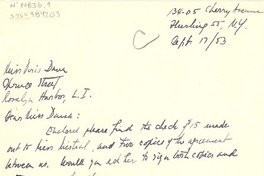 134-05 Cherry Avenue
Flushing 55, N.Y.
Sept 17/53
Miss Doris Dana
Street
Roslyn Harbor, L.I.
Dear Miss Dana:
Enclosed please find the check of $15 made
out to Miss Mistral, and two copies of the agreement
between us. Would you ask her to sign both copies and